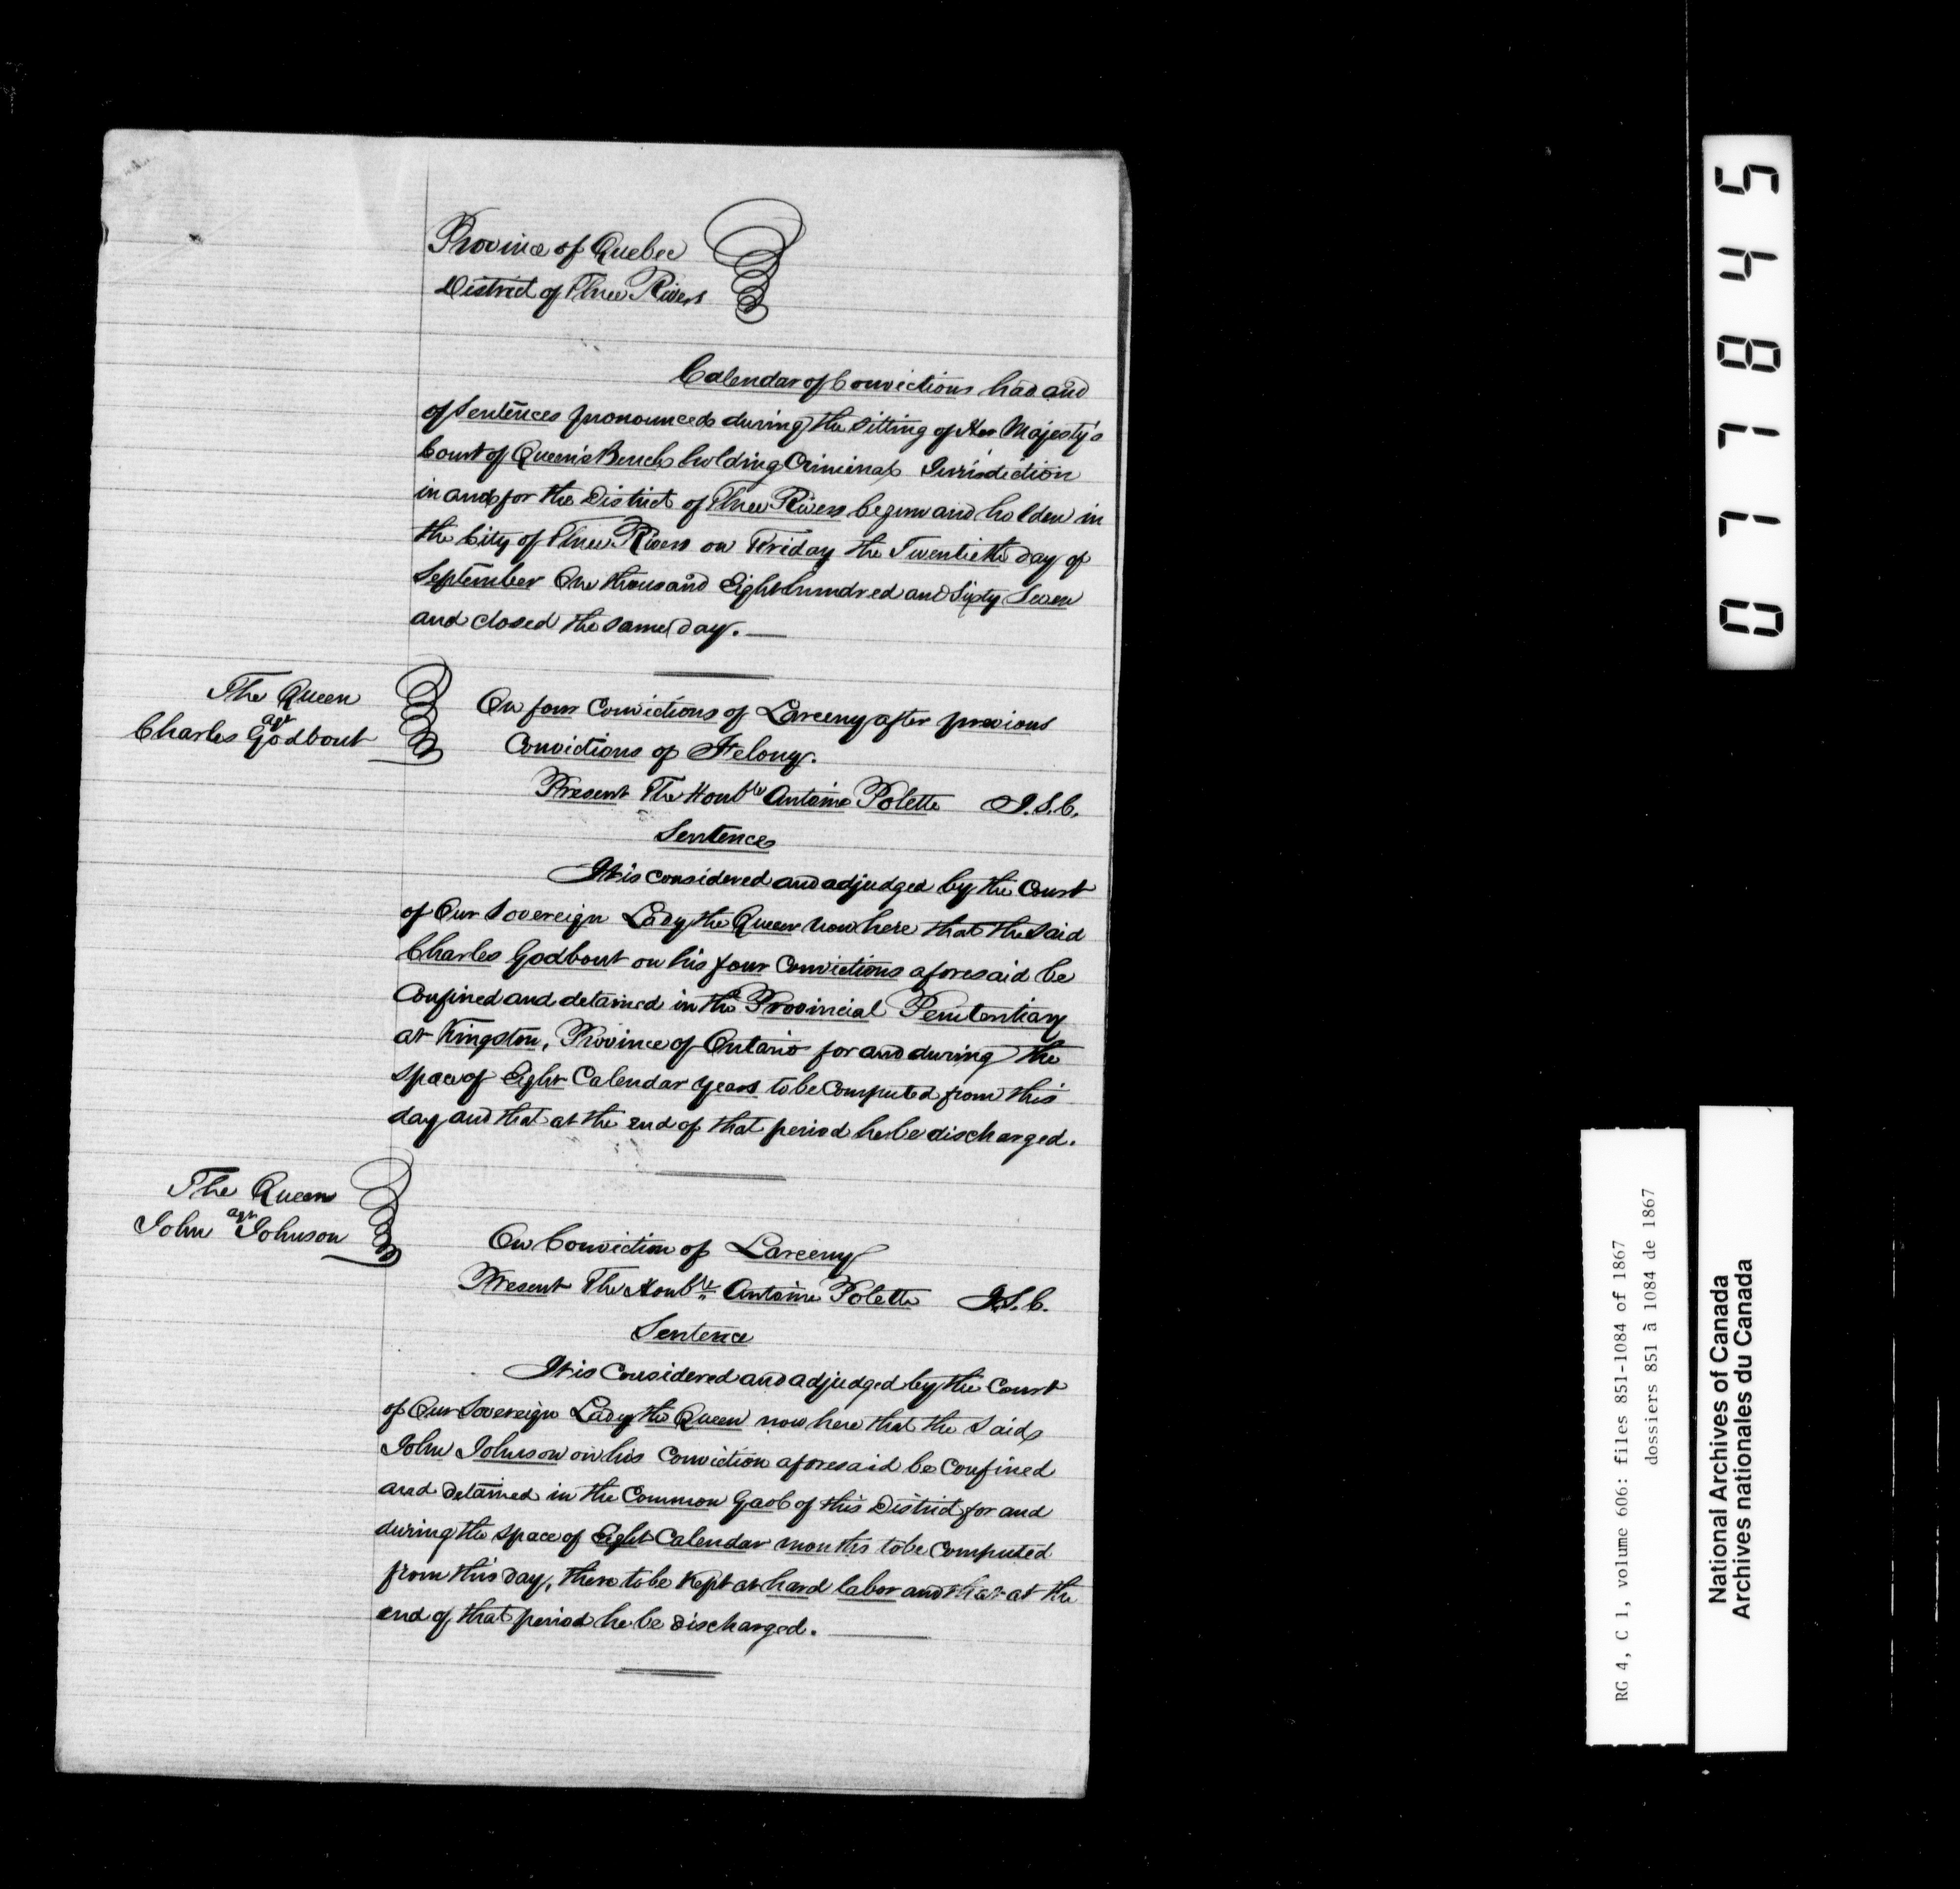 Province of Quebec
District of Three Rivers
Calendar of Convictions had and
of Sentences pronounced during the sitting of Her Majesty's
Court of Queen's Bench holding Criminal Jurisdiction
in and for the District of Three Rivers begun and holden in
the City of Three Rivers on Friday the Twentieth day of
September One thousand Eight hundred and Sixty Seven
and closed the same day. —
The Queen
agt
Charles Godbout
On four Convictions of Larceny after previous
Convictions of Felony.
Present The Honble Antoine Polette J.S.C.
Sentence
It is considered and adjudged by the Court
of Our Sovereign Lady the Queen now here that the said
Charles Godbout on his four Convictions aforesaid be
Confined and detained in the Provincial Penitentiary
at Kingston, Province of Ontario for and during the
space of Eight Calendar years to be Computed from this
day and that at the end of that period he be discharged.
The Queen
agt
John Johnson
On Conviction of Larceny
Present The Honble Antoine Polette J.S.C.
Sentence
It is Considered and adjudged by the Court
of Our Sovereign Lady the Queen now here that the said
John Johnson on his Conviction aforesaid be Confined
and detained in the Common Gaol of this District for and
during the space of Eight Calendar months to be Computed
from this day, there to be Kept at hard labor and that at the
end of that period he be discharged. —
077845
RG 4, C 1, volume 606: files 851-1084 of 1867
dossiers 851 à 1084 de 1867
National Archives of Canada
Archives nationales du Canada